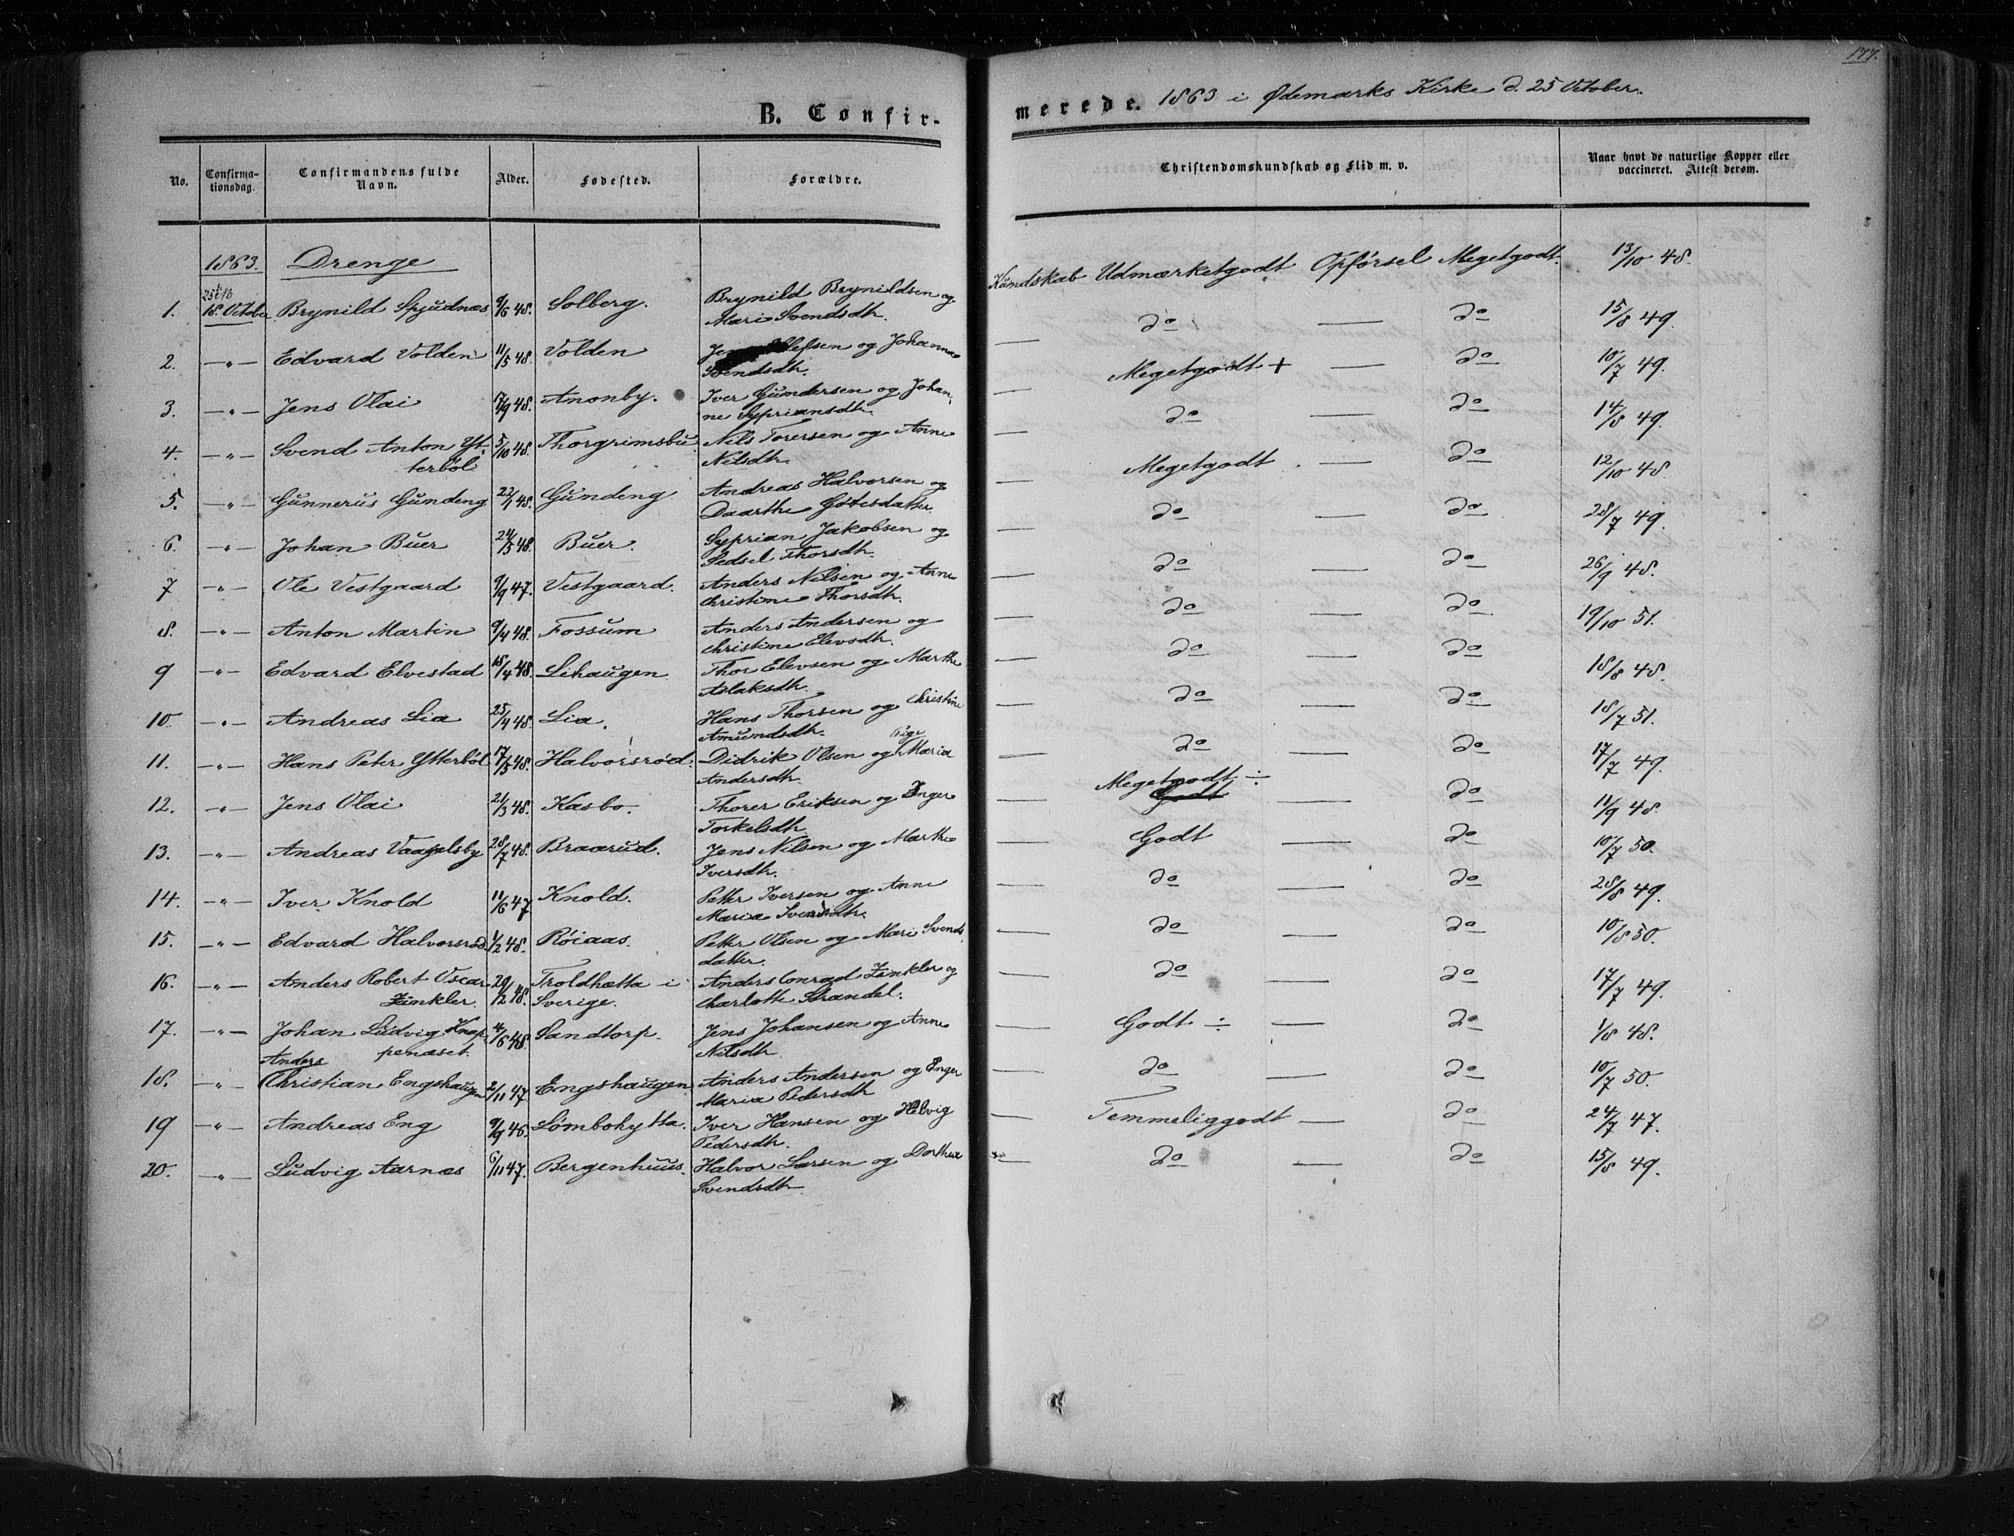 177.
B. Confirmerede. 1863 i Ødemarks Kirke d. 25 October.
No. Confirmationsdag. Confirmandens fulde Navn. Alder. Fødested. Forældre. Christendomskundskab og Flid m. v. Naar havt de naturlige Kopper eller vaccineret. Attest derom.
1863. Drenge
1. 18. October Brynild Spjudnæs 9/6 48. Solberg. Brynild Brynildsen og Kundskab Udmærketgodt Opførsel Megetgodt. 13/10 48.
Mari Svendsdtr.
2. -"- Edvard Volden 11/5 48. Volden og Johanne — do — do 15/8 49.
Svendsdtr.
3. -"- Jens Olai 17/9 48. Amonby. Iver Gundersen og Johan- — Megetgodt + — do 10/7 49.
ne Sypriansdtr.
4. -"- Svend Anton Yt- 5/10 48. Thorgrimsbu Nils Torersen og Anne — do — do 14/8 49.
terböl Nilsdtr.
5. -"- Gunnerus Gundeng 22/1 48. Gundeng Andreas Halvorsen og — Megetgodt — do 12/10 48.
Daarthe Gotesdatter
6. -"- Johan Buer 24/3 48. Buer. Syprian Jakobsen og — do — do 28/7 49.
Sedsel Thorsdtr.
7 -"- Ole Vestgaard 9/9 47. Vestgaard. Anders Nilsen og Anne — do — do 26/9 48.
Christine Thorsdtr.
8. -"- Anton Martin 9/4 48. Fossum Anders Andersen og — do — do 19/10 51.
Christine Elevsdtr.
9 -"- Edvard Elvestad 18/4 48. Lihaugen Thor Elevsen og Marthe — do — do 18/8 48.
Aslaksdtr.
10. -"- Andreas Lia 25/4 48. Lia. Hans Thorsen og Christine — do — do 18/7 51.
Amundsdtr.
11. -"- Hans Peter Ytterböl 17/5 48. Halvorsrød. Didrik Olsen og Pige Maria — do — do 17/7 49.
Andersdtr.
12. -"- Jens Olai 21/3 48. Kasbo. Thorer Eriksen og Inger Megetgodt ÷ — do 11/9 48.
Torkelsdtr. Godt
13. -"- Andreas Vaagelsby 28/7 48. Braarud. Jens Nilsen og Marthe — Godt — do 10/7 50.
Iversdtr.
14. -"- Iver Knold 11/6 47. Knold. Petter Iversen og Anne — do — do 28/8 49.
Maria Svendsdtr.
15. -"- Edvard Halvorsrød 1/2 48. Röiaas. Petter Olsen og Mari Svends- — do — do 10/8 50.
datter.
16. -"- Anders Robert Oscar 29/12 48. Troldhætta i Anders Conrad Zinkler og — do — do 17/7 49.
Zinkler. Sverige. Charlotte Strandel.
17. -"- Johan Ludvig Knap- 4/6 48. Sandtorp. Jens Johansen og Anne — Godt ÷ — do 1/8 48.
penæset. Nilsdtr.
Anders
18. -"- Christian Engshaugen 2/11 47. Engshaugen Anders Andersen og Inger — do — do 10/7 50.
Maria Pedersdtr
19 -"- Andreas Eng 9/9 46. Lömbohytta. Iver Hansen og Helvig — Temmeliggodt — do 24/7 47.
Pedersdtr.
20. -"- Ludvig Aarnæs 6/11 47. Bergenhuus. Halvor Larsen og Dorthea — do — do 15/8 49.
Svendsdtr.